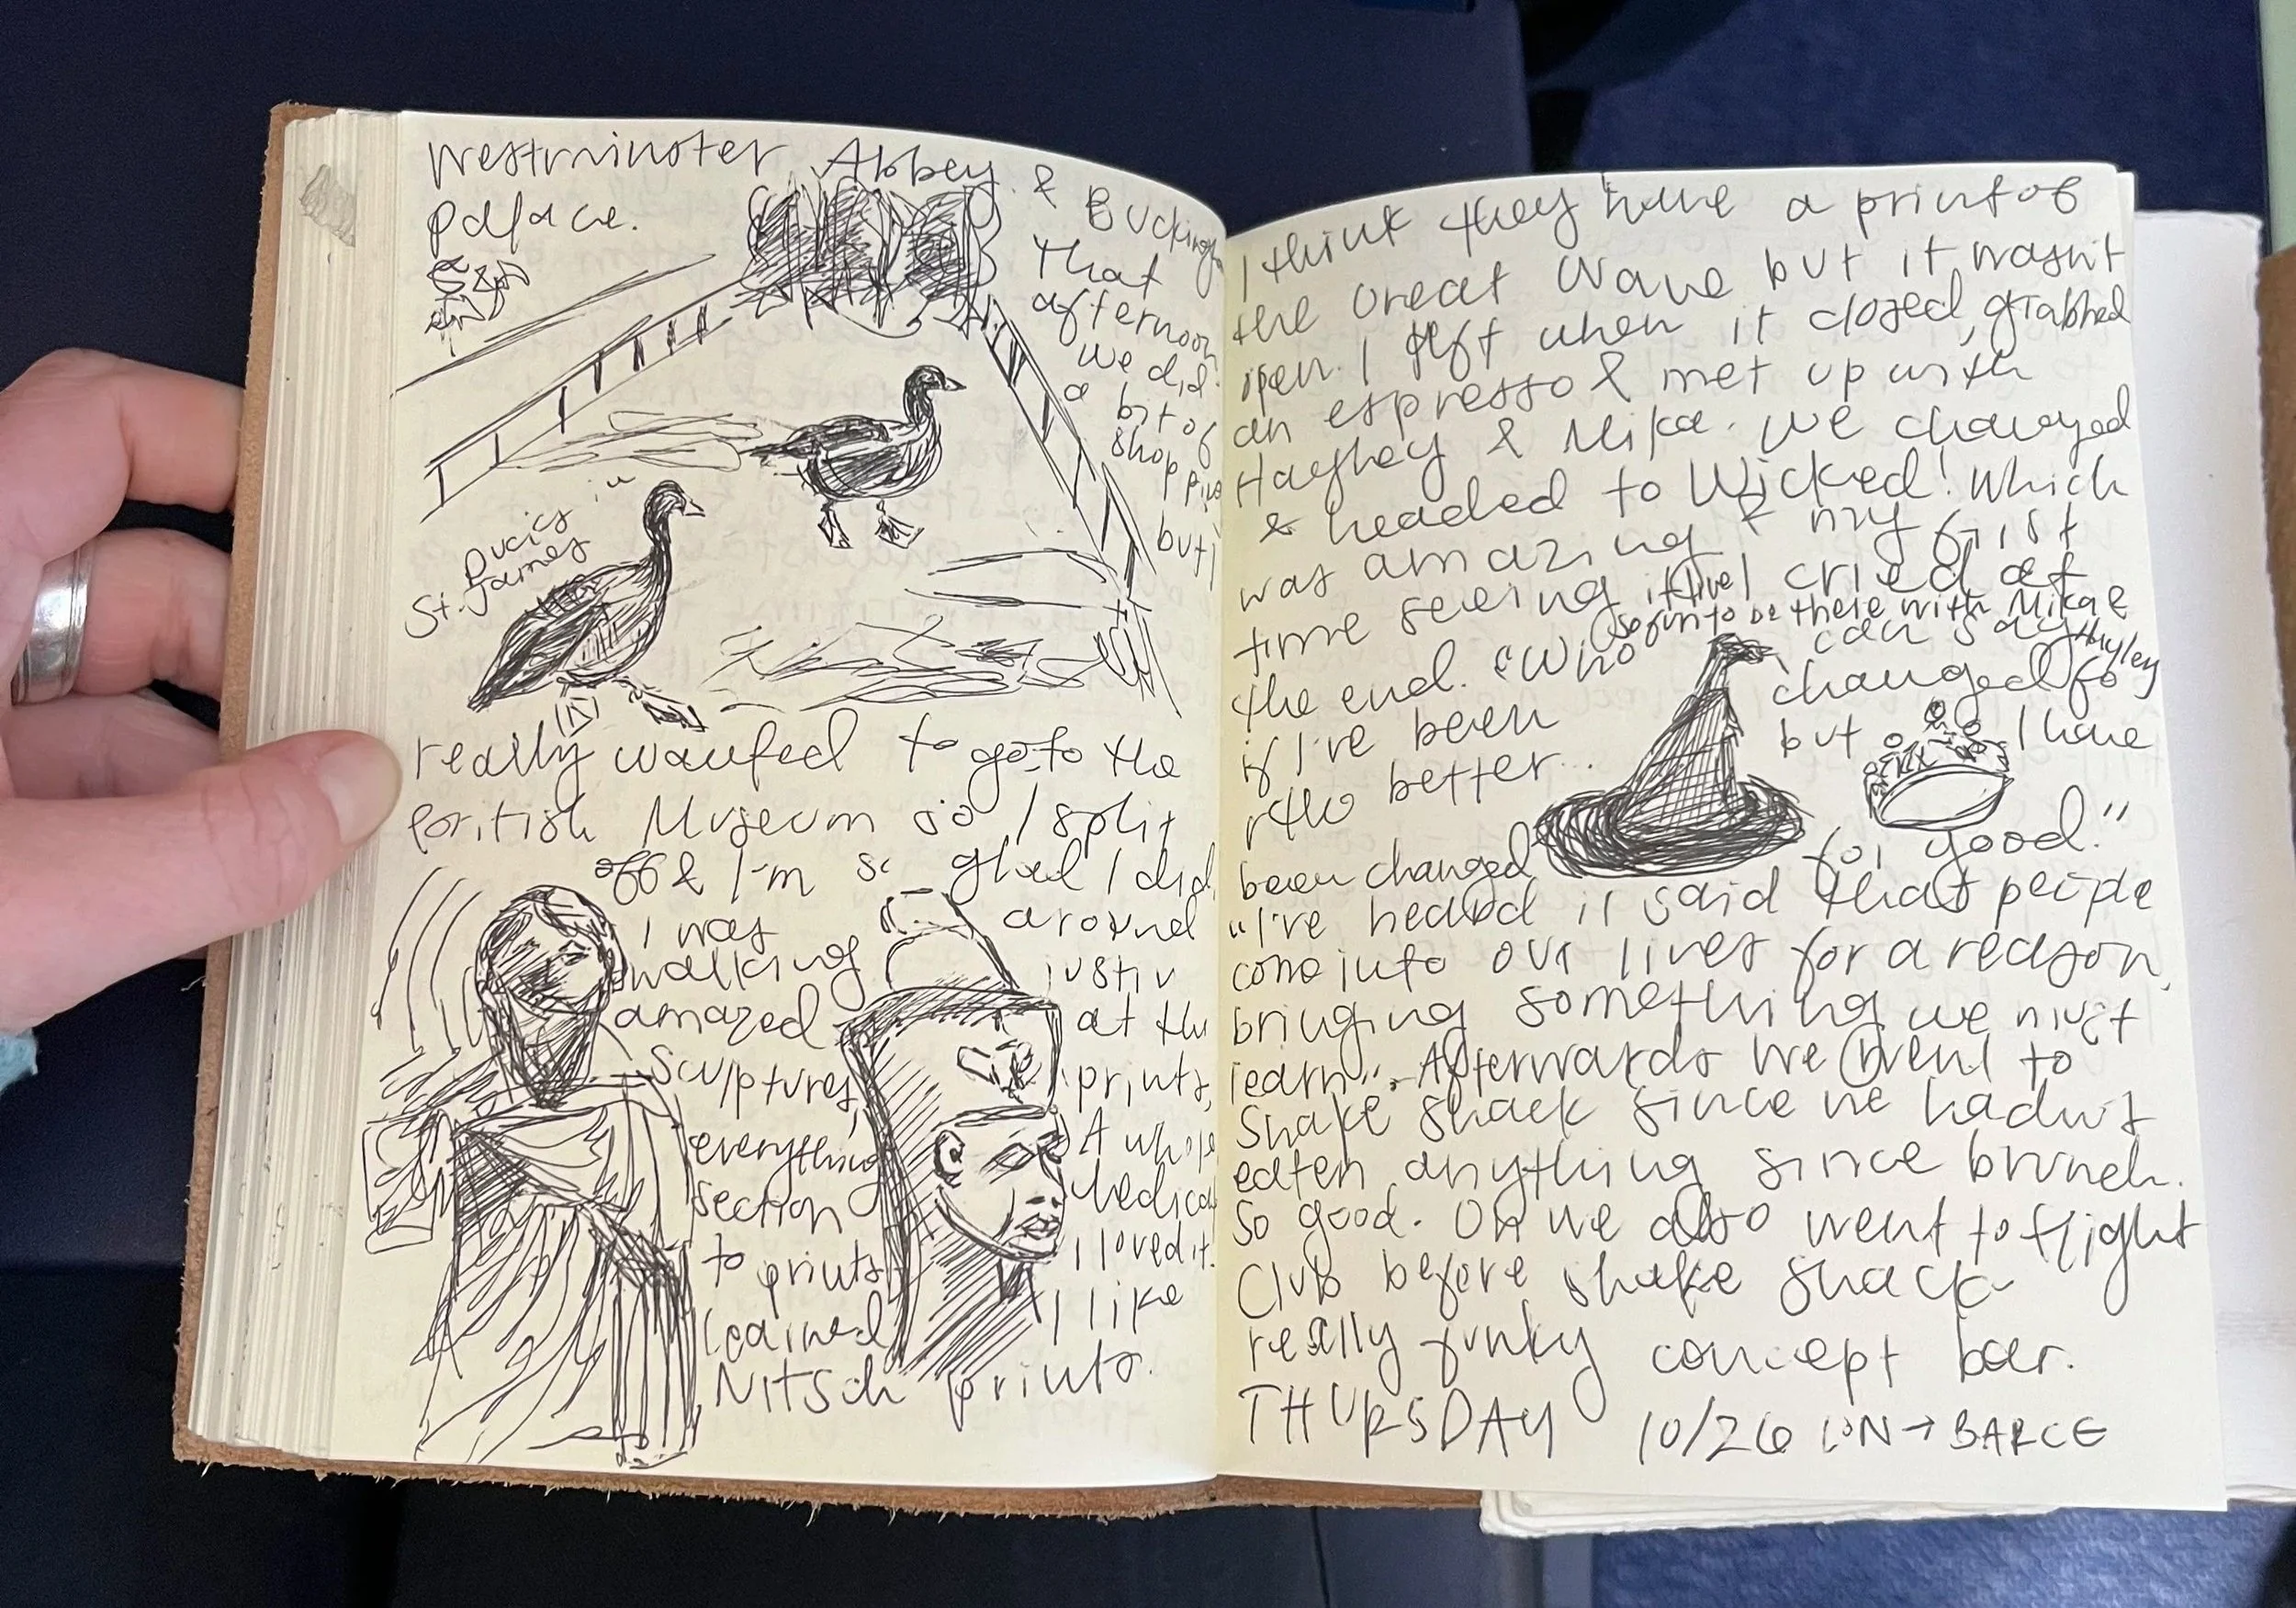 Westminster Abbey & Bucking
palace.
That
afternoon
we did
a bit of
shopping
but I
Ducks in
St. James
really wanted to go to the
British Museum so I split
off & I'm so glad I did
I was
walking around
amazed at the
sculptures, prints,
everything A whole
section dedicated
to prints I loved it.
learned I like
Nitsch prints.
I think they have a print of
the Great Wave but it wasn't
open. I left when it closed, grabbed
an espresso & met up with
Hayley & Mika. We changed
& headed to Wicked! Which
was amazing & my first
time seeing it live I cried at
so fun to be there with Mika &
Hayley
the end. "Who can say
if I've been changed fo
the better... but I have
been changed for good."
"I've heard it said that people
come into our lives for a reason,
bringing something we must
learn". Afterwards we went to
Shake Shack since we hadn't
eaten anything since brunch.
So good. Oh we also went to flight
Club before shake shack
really funky concept bar.
THURSDAY 10/26 LON → BARCE